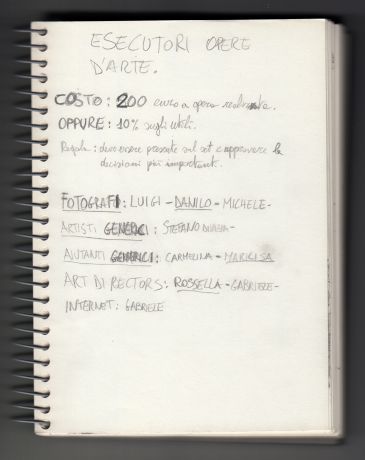 ESECUTORI OPERE
D'ARTE.
COSTO: 200 euro a opera realizzata.
OPPURE: 10% sugli utili.
Regola: deve essere presente sul set e approvare le
decisioni più importanti.
FOTOGRAFI: LUIGI - DANILO - MICHELE -
ARTISTI GENERICI: STEFANO
AIUTANTI GENERICI: CARMELINA - MARIGISA
ART DIRECTORS: ROSSELLA - GABRIELE -
INTERNET: GABRIELE